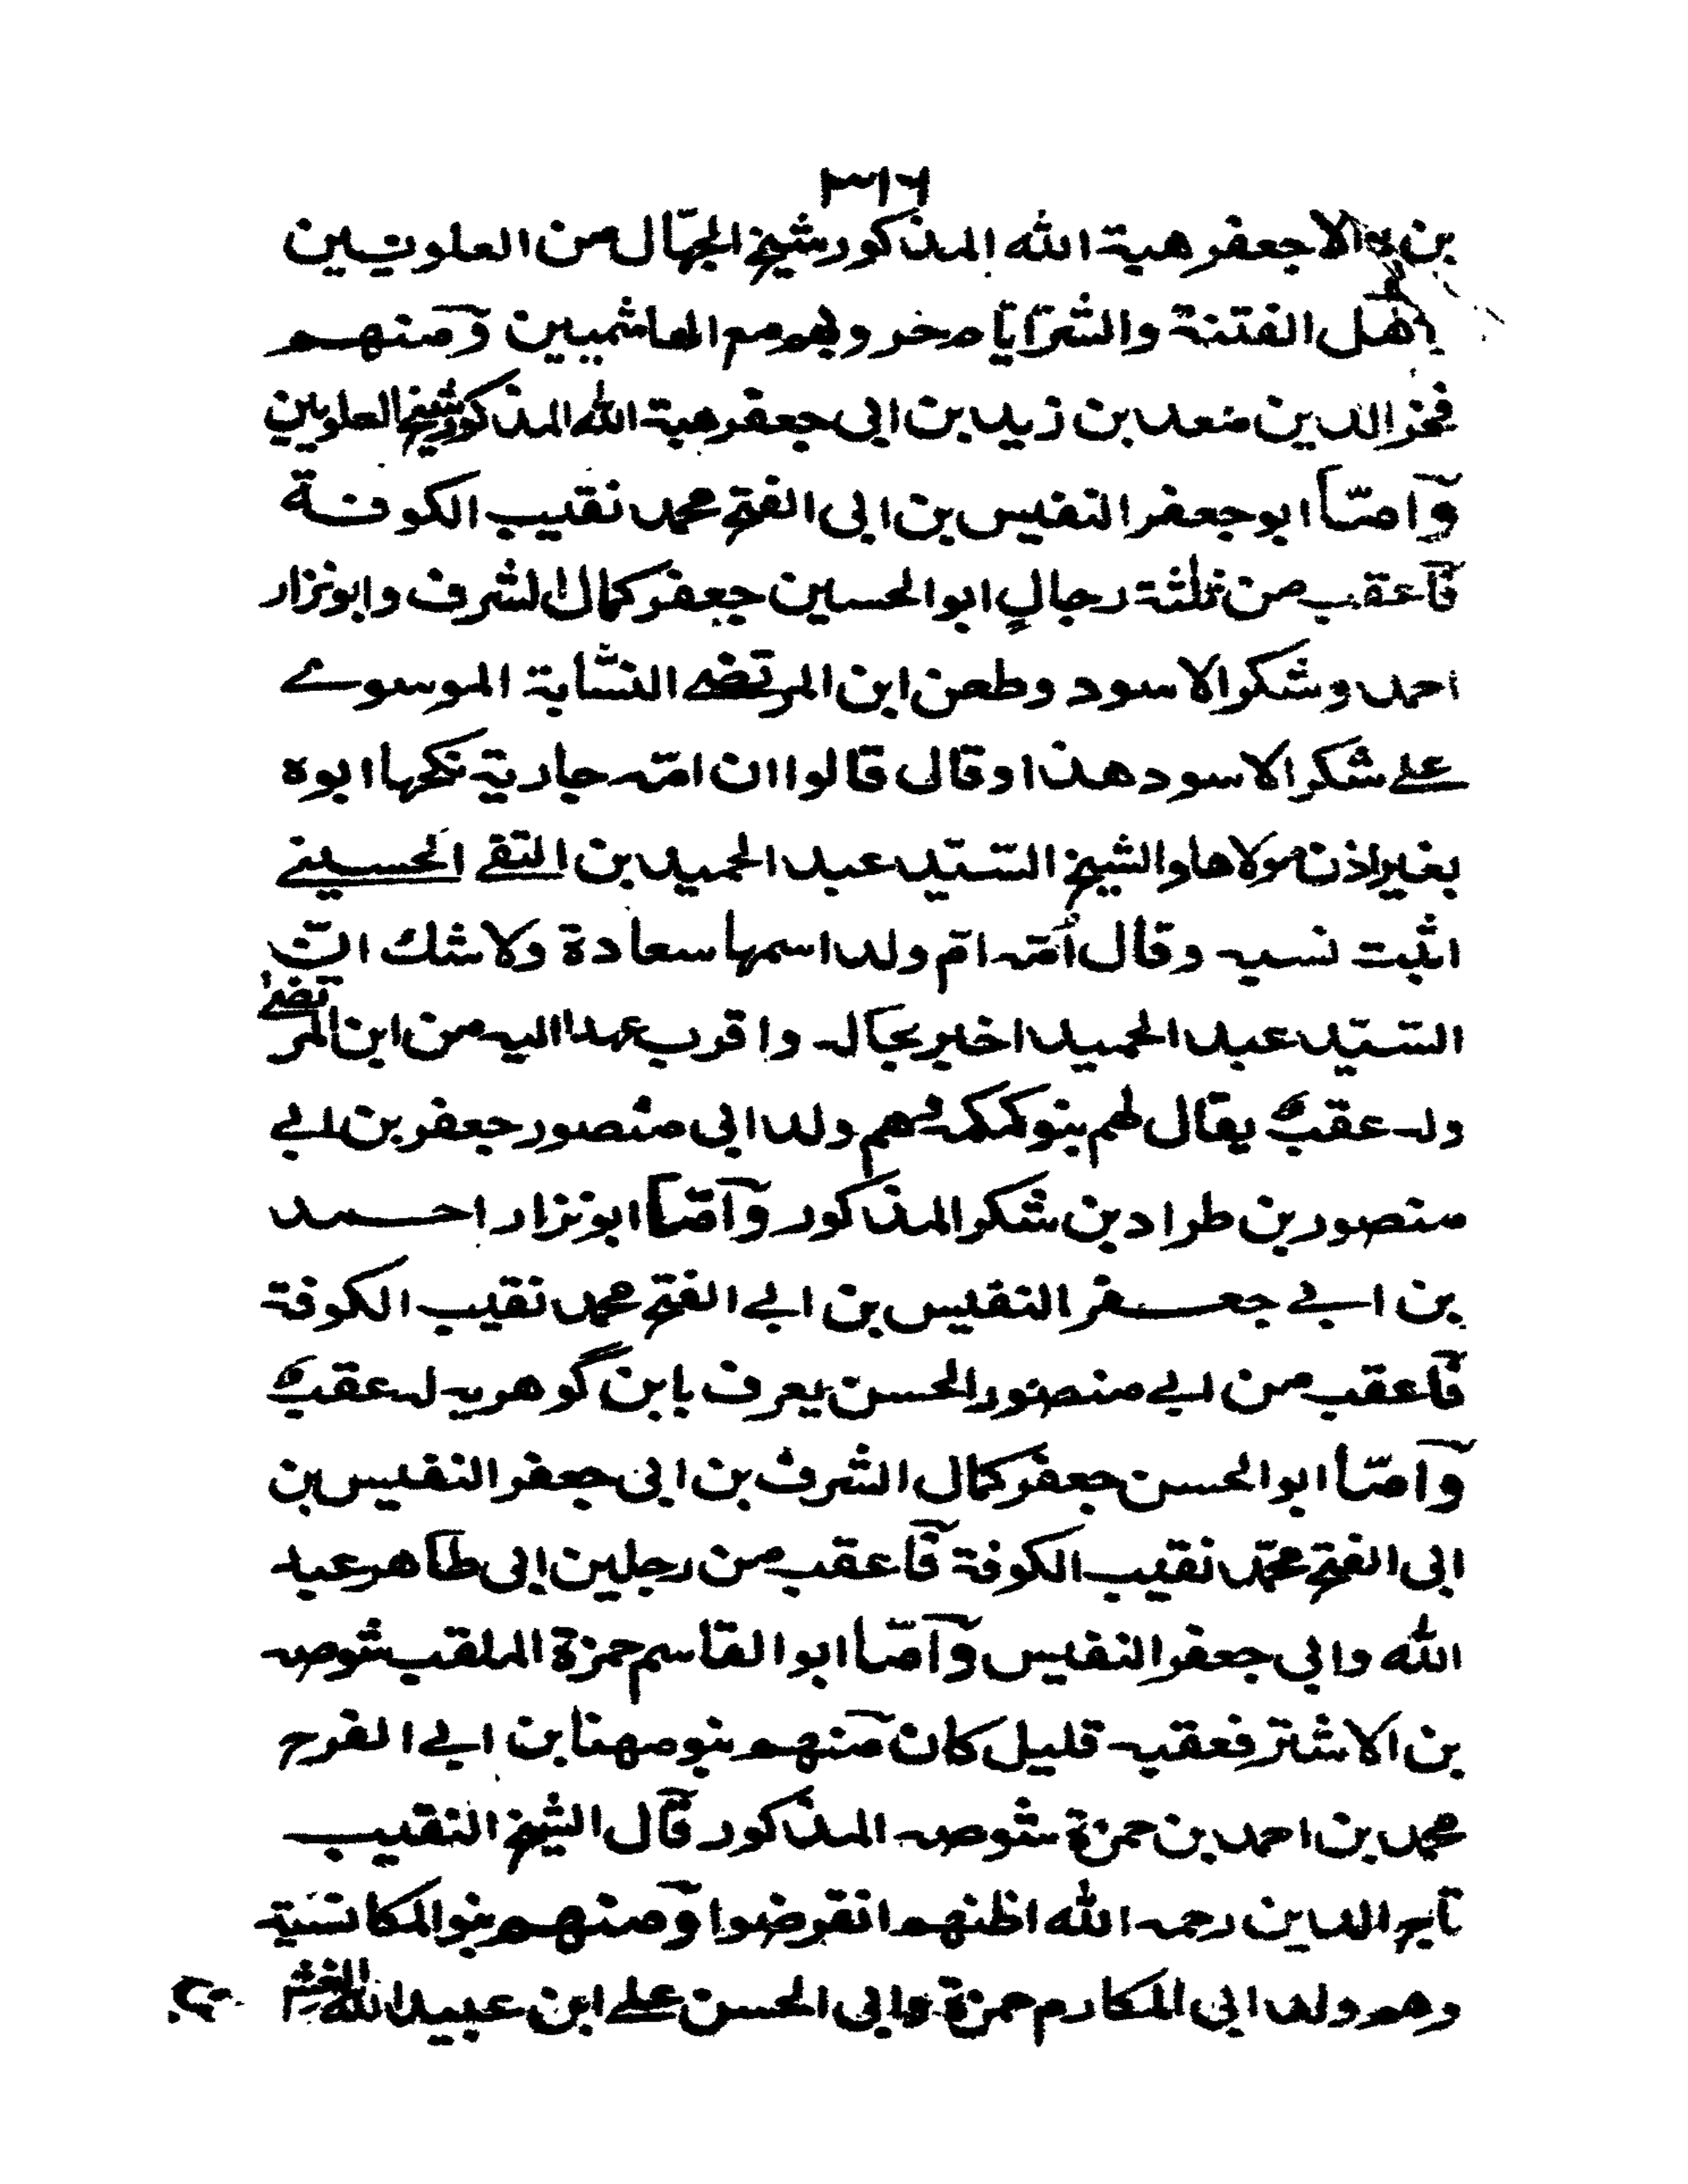 ٣١٦
بن الا جعفر هبة الله المذكور شيخ الجهّال من العلويين
اهل الفتنة والشرّ ايا مخر وبهم مع الهاشميين ومنهم
فخر الدين معد بن زيد بن ابى جعفر هبة الله المذكور شيخ العلويين
وامّا ابو جعفر النفيس بن ابى الفتح محمد نقيب الكوفة
فاعقب من ثلثة رجالٍ ابو الحسين جعفر كمال الشرف وابو نزار
احمد وشكر الاسود وطعن ابن المرتضے النسّابة الموسوے
علے شكر الاسود هذا وقال قالوا ان امّه جارية نكحها ابوه
بغير اذن مولاها والشيخ السّيّد عبد الحميد بن التقے الحسينے
اثبت نسبه وقال اُمّه امّ ولد اسمها سعادة ولا شك انّ
السّيّد عبد الحميد اخبر بحاله واقرب عهدا اليه من ابن المرتضے
وله عقبٌ يقال لهم بنو كمكمه هم ولد ابى منصور جعفر بن ابے
منصور بن طراد بن شكر المذكور وامّا ابو نزار احمد
بن ابے جعفر النفيس بن ابے الفتح محمد نقيب الكوفة
فاعقب من ابے منصور الحسن يعرف بابن گوهريه له عقبٌ
وامّا ابو الحسن جعفر كمال الشرف بن ابى جعفر النفيس بن
ابى الفتح محمّد نقيب الكوفة فاعقب من رجلين ابى طاهر عبد
الله وابى جعفر النفيس وامّا ابو القاسم حمزة الملقب شوصه
بن الاشتر فعقبه قليل كان منهم بنو مهنا بن ابے الفرج
محمد بن احمد بن حمزة شوصه المذكور قال الشيخ النقيب
تاج الدين رحمه الله اظنهم انقرضوا ومنهم بنو المكانسية
وهم ولد ابى المكارم حمزة وابى الحسن علے ابن عبيد الله